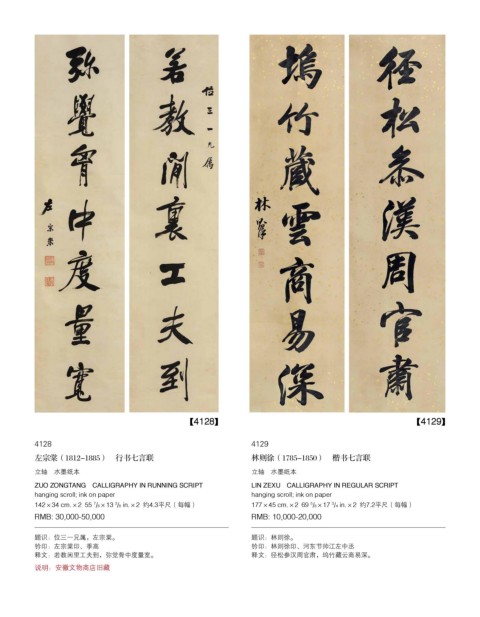 若教閒裏工夫到
位三一兄屬
彌覺胷中度量寬
左宗棠
徑松叅漢周官肅
塢竹藏雲商易深
林則徐
【4128】
【4129】
4128
左宗棠（1812-1885） 行书七言联
立轴 水墨纸本
ZUO ZONGTANG CALLIGRAPHY IN RUNNING SCRIPT
hanging scroll; ink on paper
142×34 cm. ×2 55 7/8×13 3/8 in. ×2 约4.3平尺（每幅）
RMB: 30,000-50,000
题识：位三一兄属，左宗棠。
钤印：左宗棠印、季高
释文：若教闲里工夫到，弥觉胸中度量宽。
说明：安徽文物商店旧藏
4129
林则徐（1785-1850） 楷书七言联
立轴 水墨纸本
LIN ZEXU CALLIGRAPHY IN REGULAR SCRIPT
hanging scroll; ink on paper
177×45 cm. ×2 69 5/8×17 3/4 in. ×2 约7.2平尺（每幅）
RMB: 10,000-20,000
题识：林则徐。
钤印：林则徐印、河东节帅江左中丞
释文：径松参汉周官肃，坞竹藏云商易深。